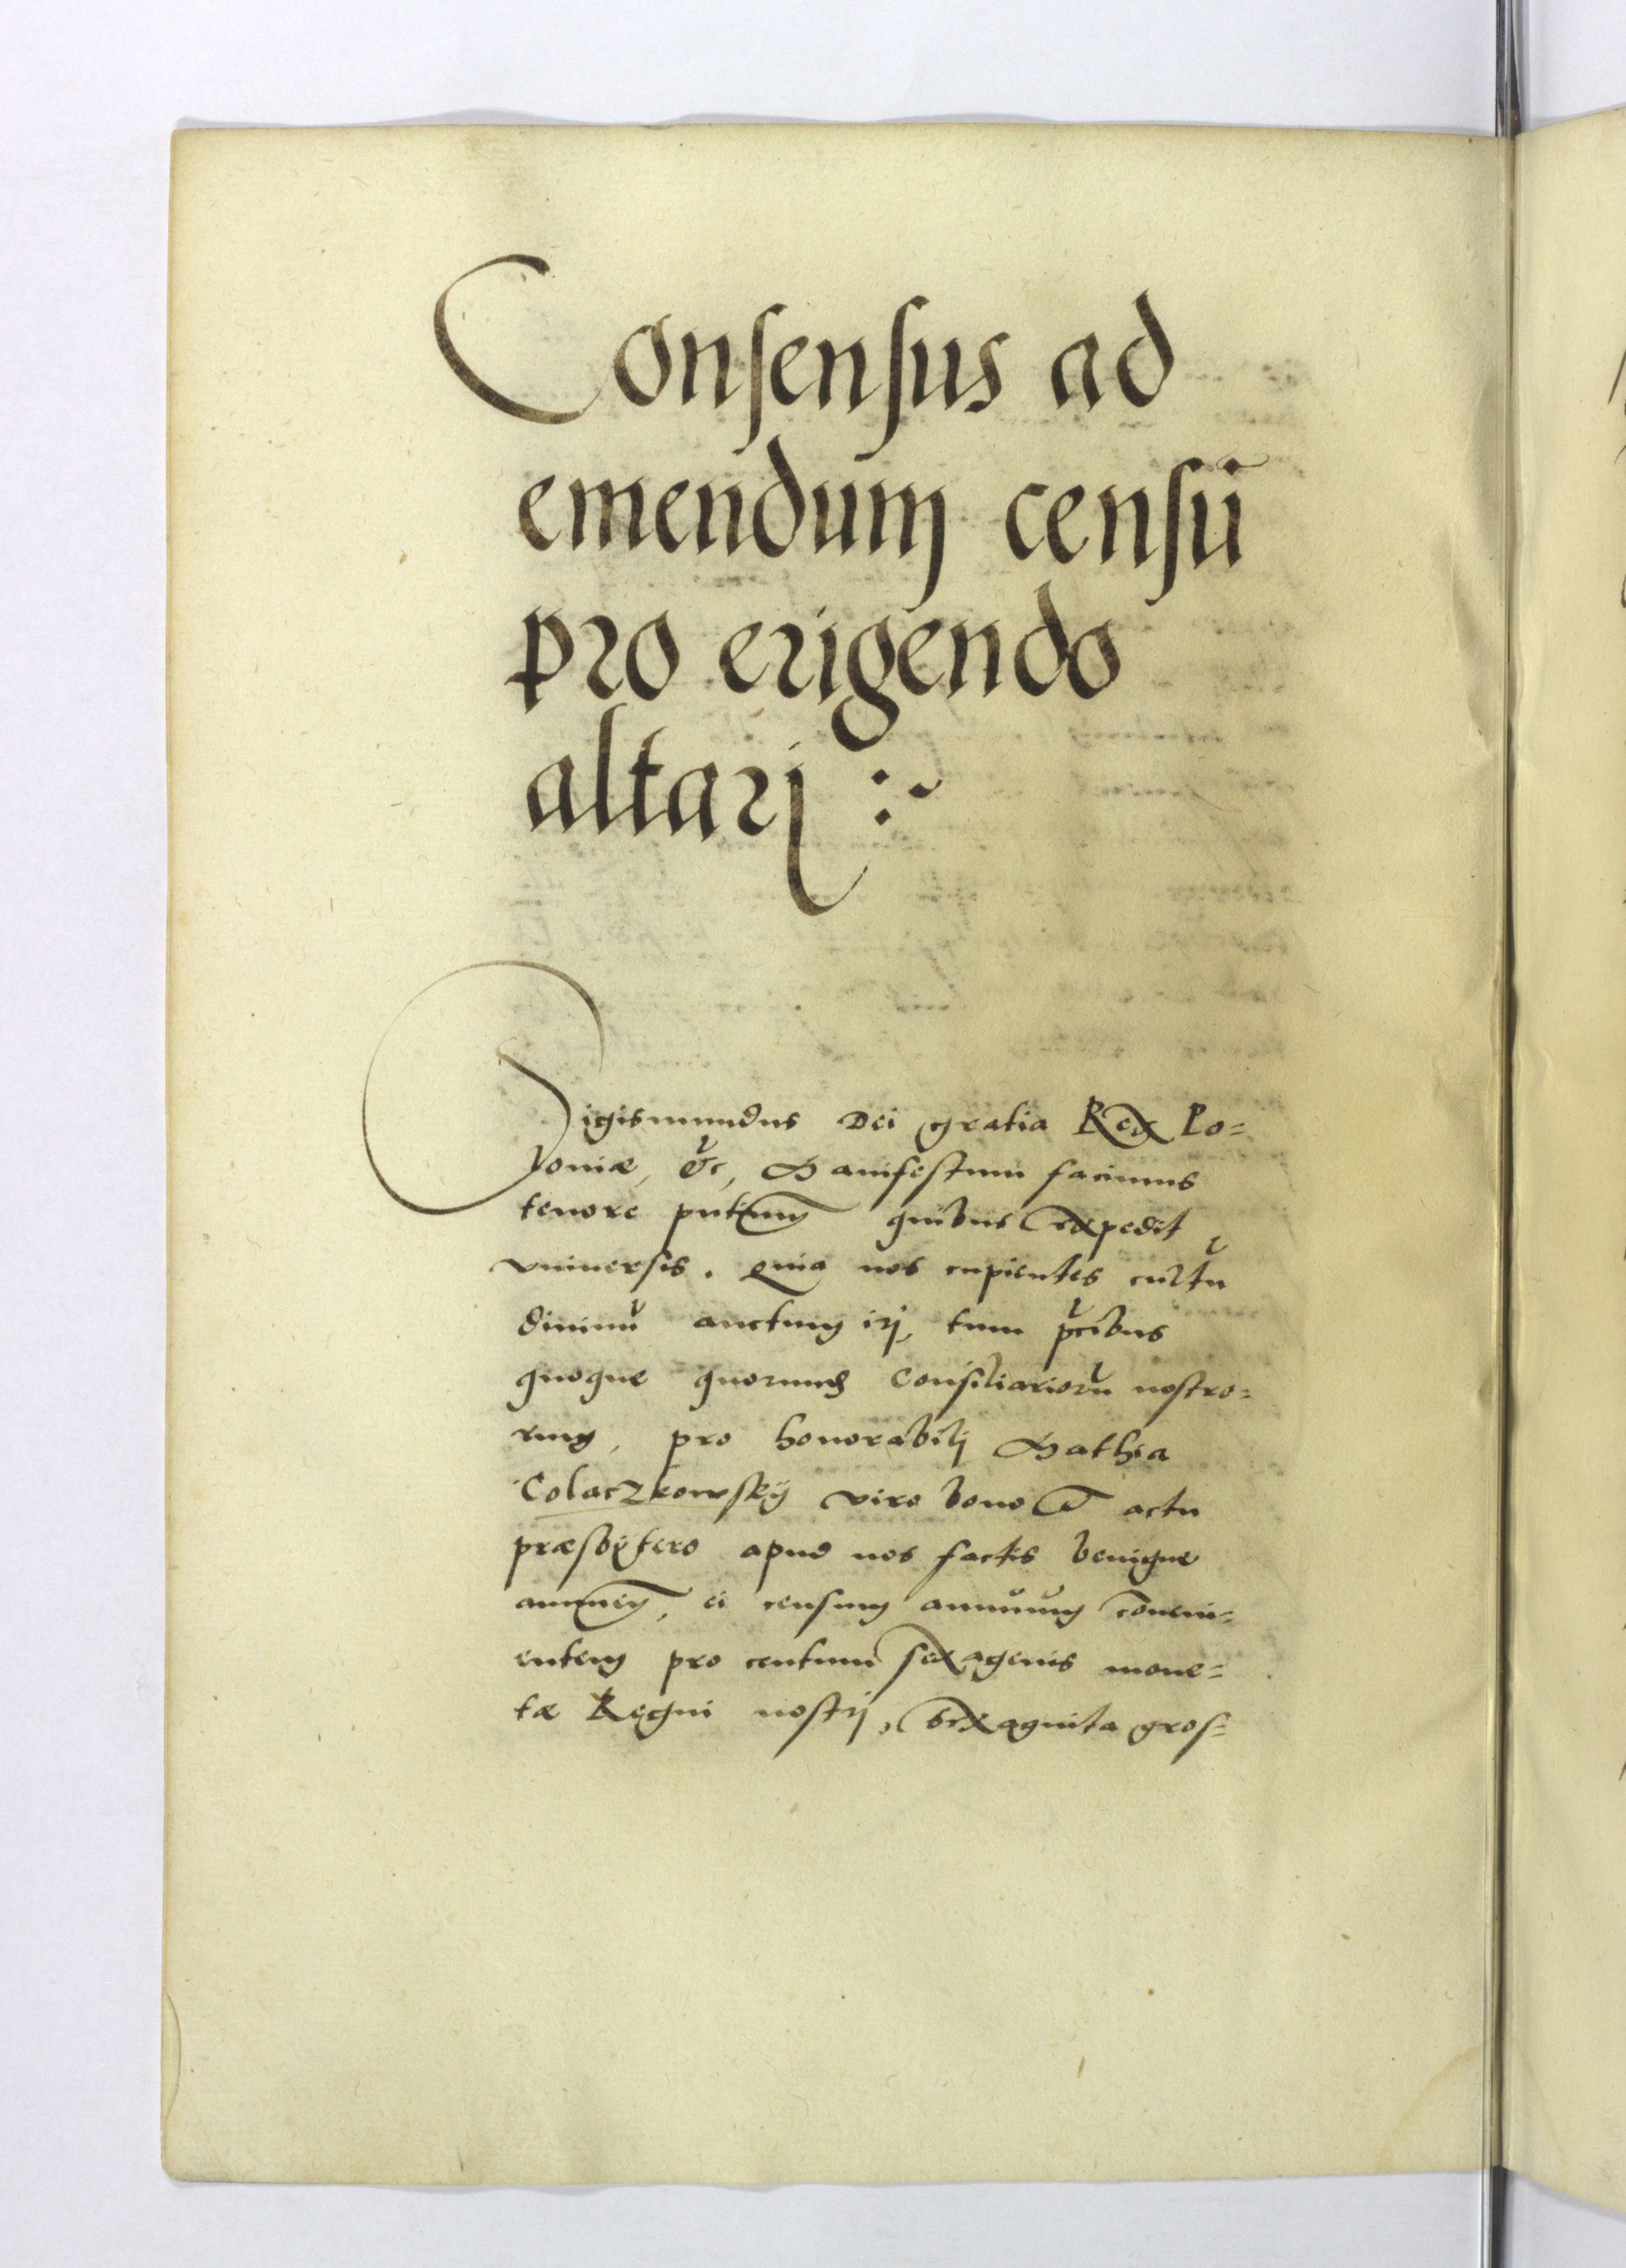 Consensus ad
emendum censū
pro erigendo
altarj :~
Sigismundus Dei gratia Rex Po=
loniæ, &c, Manifestum facimus
tenore pñtium quibus expedit
vniuersis. Quia nos cupientes cultū
diuinū auctum irj, tum p̄cibus
quoque quorund Consiliariorū nostro=
rum, pro honorabilj Mathia
Colaczkowskÿ viro bono et actu
præsbÿtero apud nos factis benigne
annuen, ei censum annuum cōueni=
entem pro centum sexagenis mone=
tæ Regni nostrj, sexaginta gros=